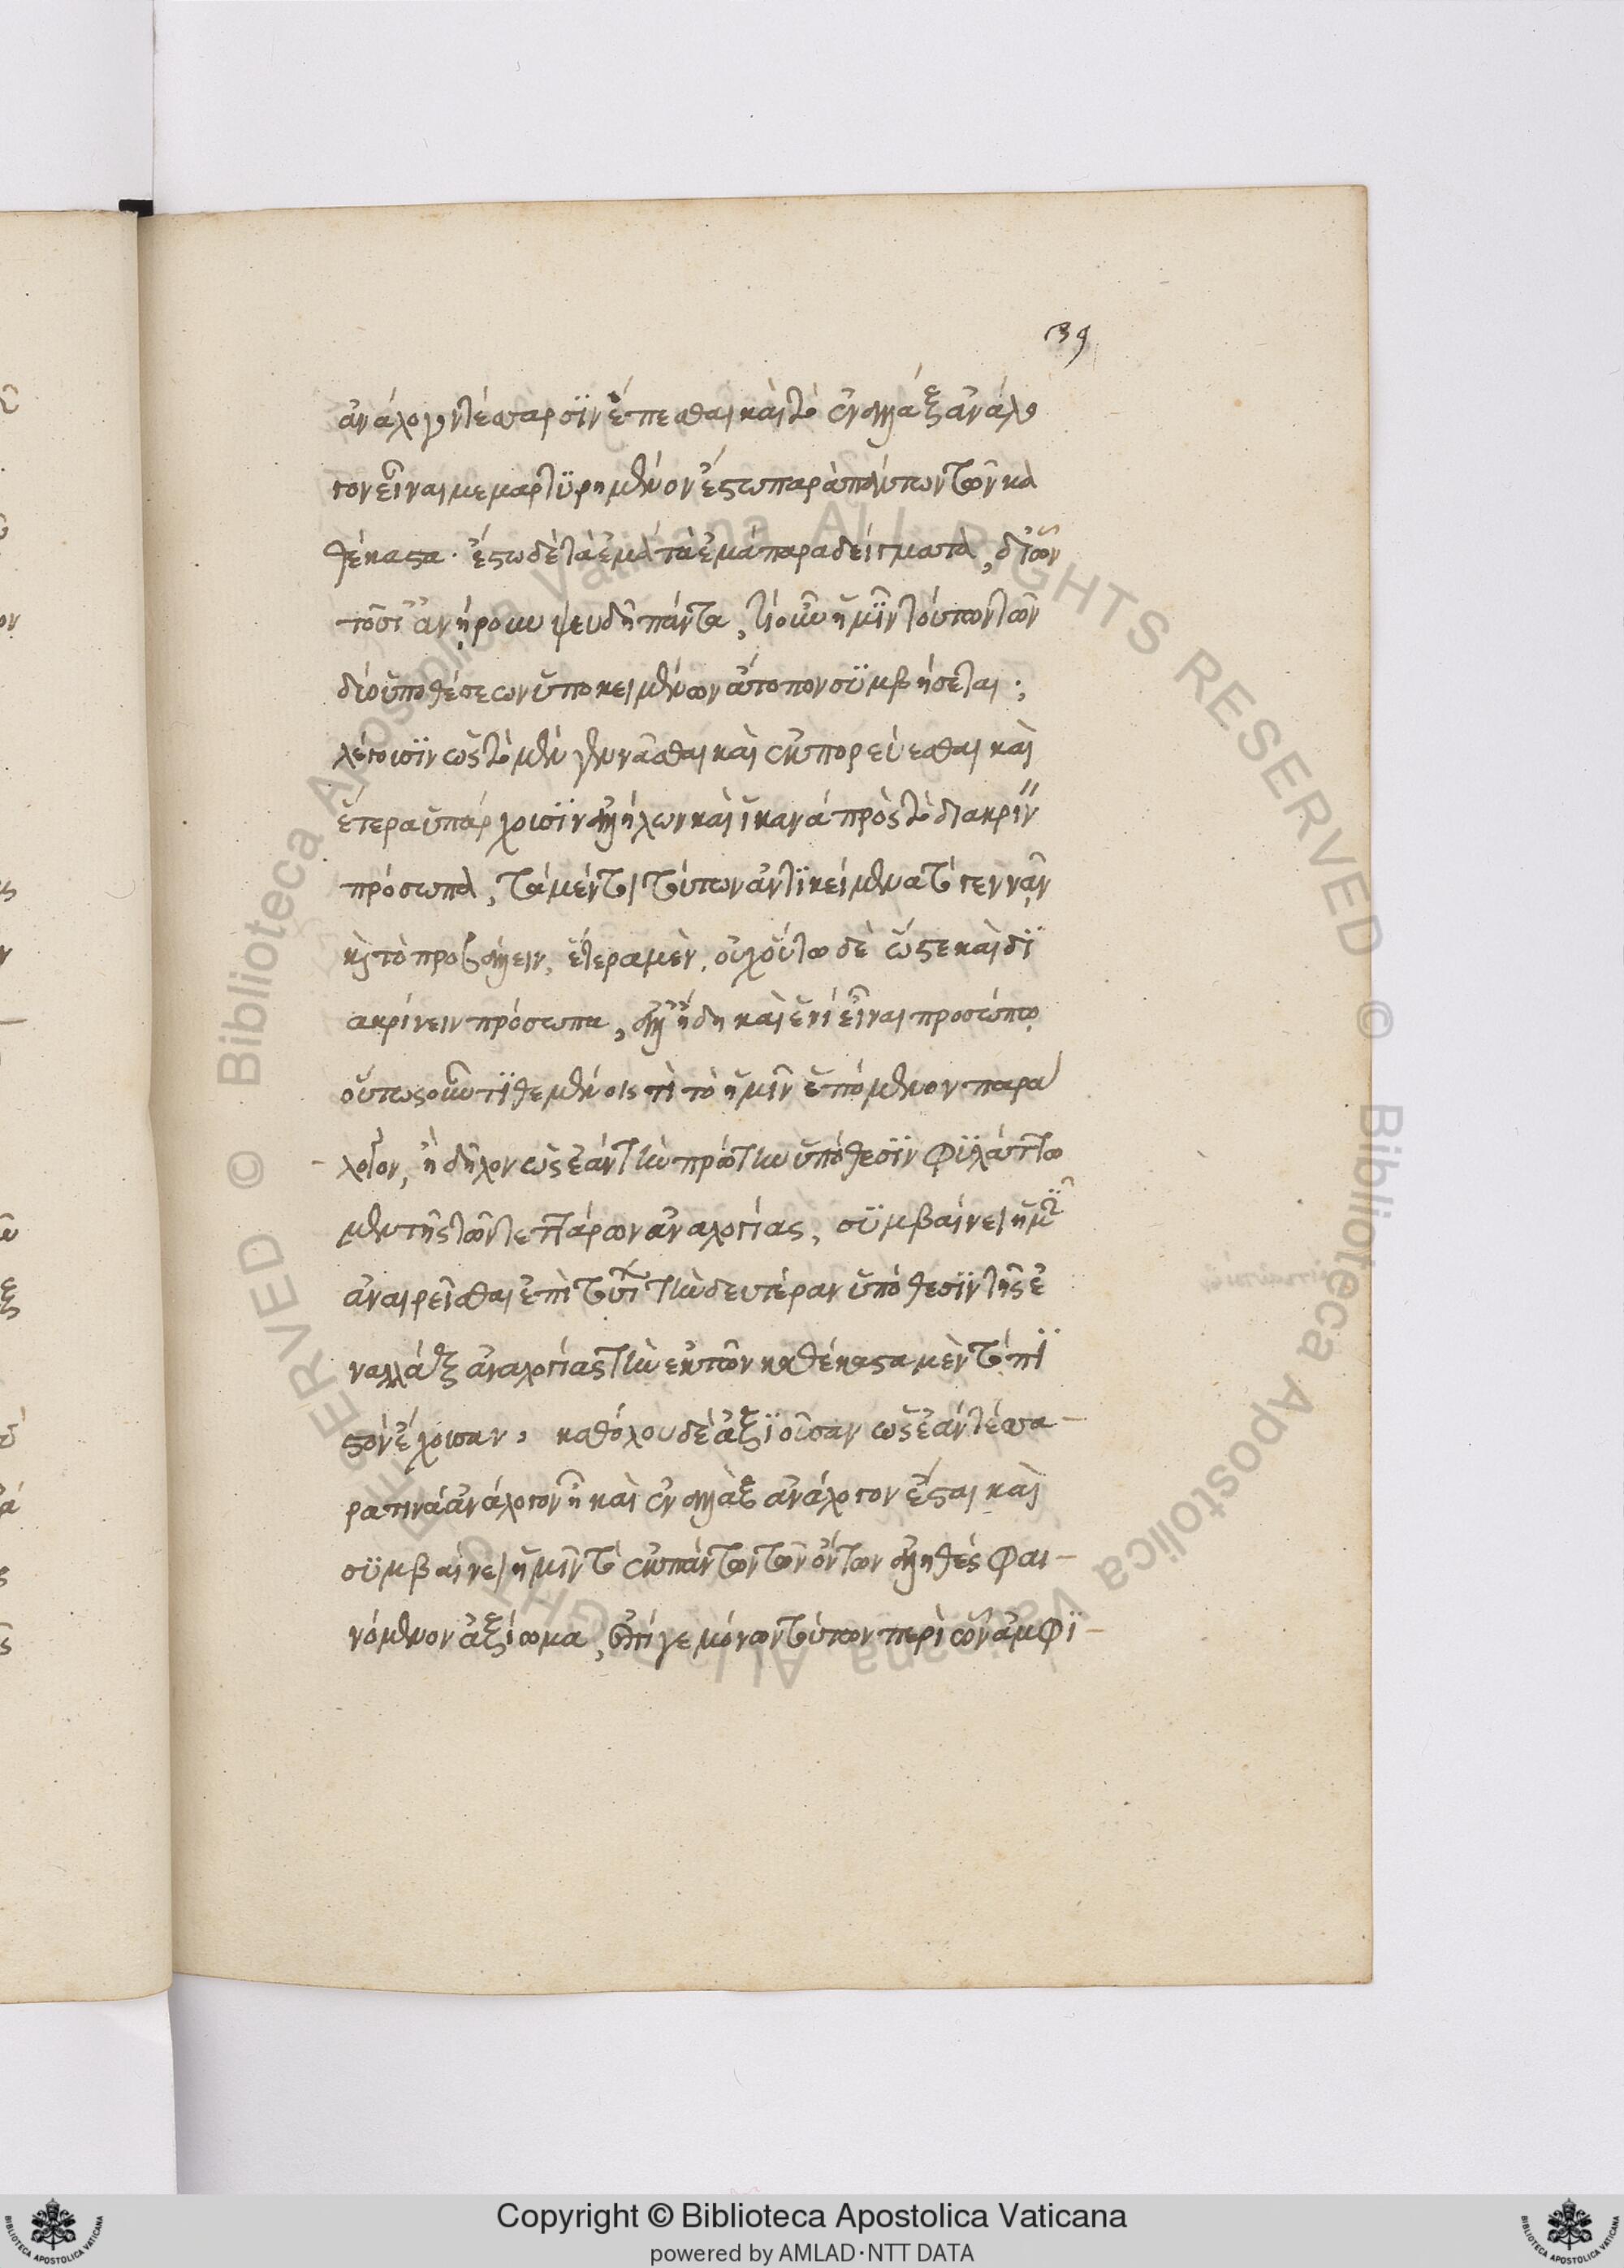 39
ἀνάλογον τέσσαρσϊν ἕπεσθαι καὶ τὸ ἐναλλάξ ἀνάλο
γον εἶναι μεμαρτϋρημένον ἔστω παρὰ πάντων τῶν κα
θέκαστα. ἔστω δὲ τὰ ἐμὰ τὰ ἐμά παραδείγματα, δι' ὧν
ἀνήρουν ψευδῆ πάντα, τί οὖν ἡμῖν τούτων τῶν
δύο ὑποθέσεων ὑποκειμένων ἄτοπον σϋμβήσεται;
λέγοισϊν ὡς τὸ μὲν γεννᾶσθαι καὶ ἐκπορεύεσθαι καὶ
ἕτερα ὑπάρχοισϊν ἀλλήλων καὶ ἱκανά πρὸς τὸ διακρίν
πρόσωπα, τά μέντοι τούτων ἀντϊκείμενα τό γεννᾶν
καὶ τὸ προβάλλειν, ἕτερα μὲν, οὐχ οὕτω δὲ ὥστε καὶ δϊ
ακρίνειν πρόσωπα, ἀλλ' ἤδη καὶ ἑνί εἶναι προσώπῳ
οὕτως οὖν τϊθεμένοις τὶ τὸ ἡμῖν ἑπόμενον παρα
λογον, ἢ δῆλον ὡς ἐάν τὴν πρώτην ὑπόθεσϊν φϋλάττω
μεν τῆς τῶν τεττάρων ἀναλογίας, σϋμβαίνει ἡμῖν
ἀναιρεῖσθαι ἐπὶ τούτοις τὴν δευτέραν ὑπόθεσϊν τῆς ἐ
ναλλάξ ἀναλογίας τὴν ἐκ τῶν καθέκαστα μὲν τό πϊ
στόν ἔχοισαν, καθόλου δὲ ἀξϊοῦσαν ὡς ἐάν τέσσα-
ρα τινά ἀνάλογον ᾖ καὶ ἐναλλὰξ ἀνάλογον ἔσται καὶ
σϋμβαίνει ἡμῖν τό ἐκ πάντων τῶν ὄντων ἀληθές φαι-
νόμενον ἀξίωμα, ἐπί γε μόνων τούτων περὶ ὧν ἀμφϊ-
Copyright © Biblioteca Apostolica Vaticana
powered by AMLAD·NTT DATA